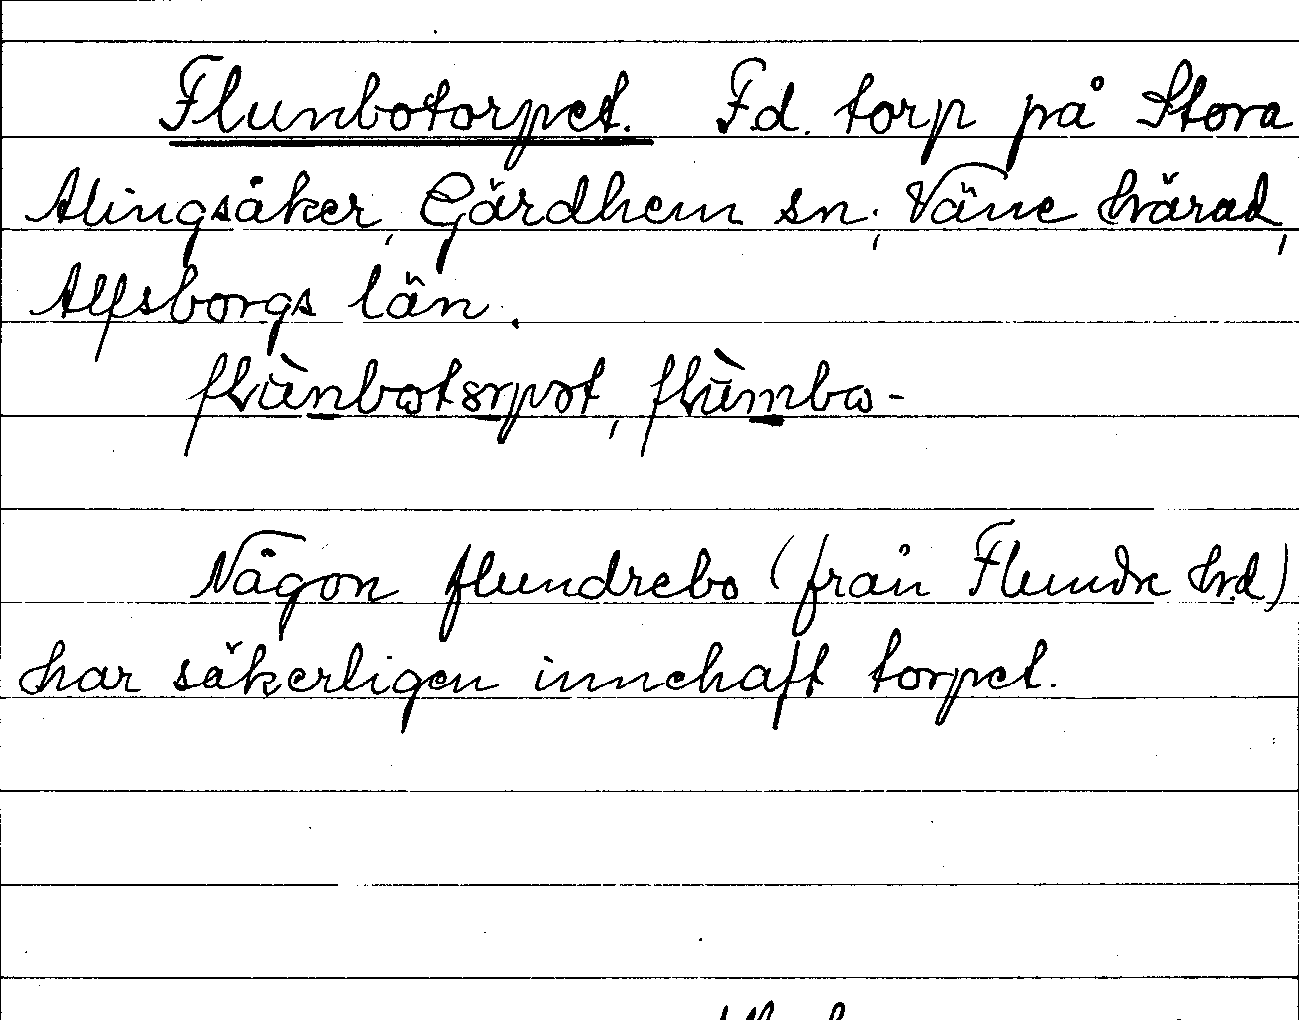 Flunbotorpet. F.d. torp på Stora
Alingsåker, Gärdhem sn, Väne härad,
Älfsborgs län.
flùnbotorpet, flùmbo-
Någon flundrebo (från Flundre hrd)
har säkerligen innehaft torpet.